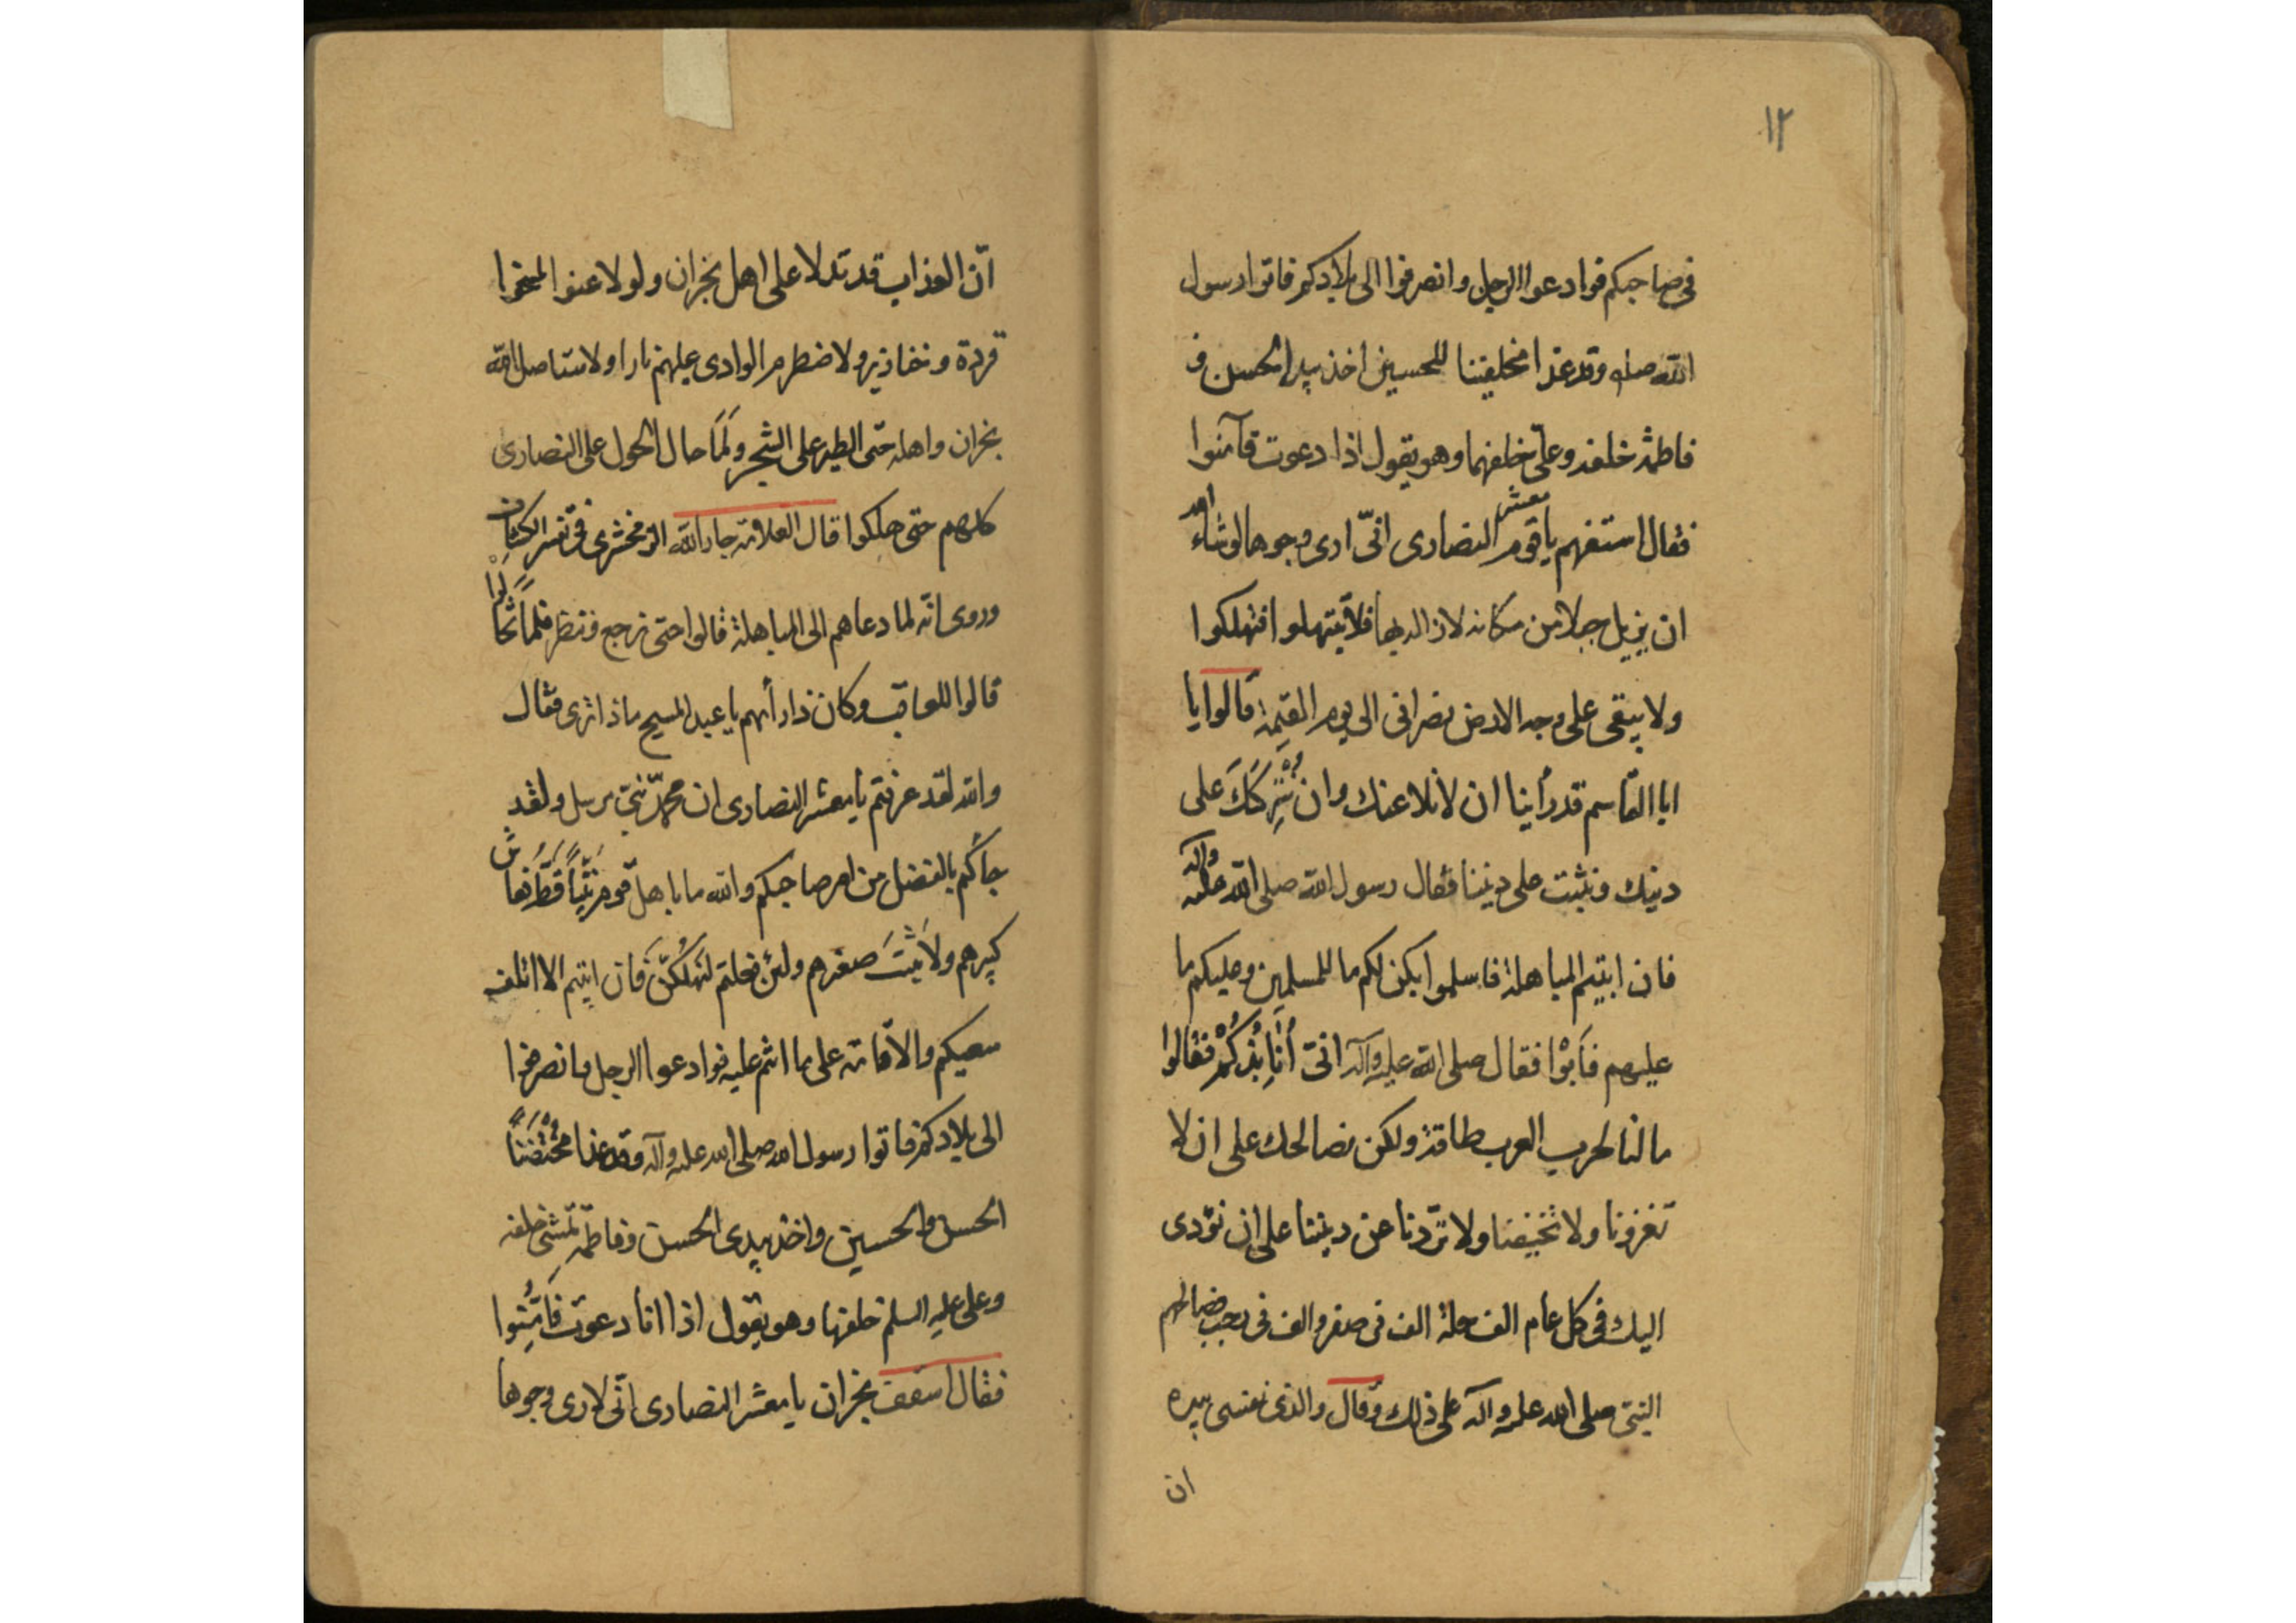 ١٢
فی صاحبکم فوادعوا الرجل وانصرفوا الی بلادکم فاتوا رسول
الله صلم وقد غدا محلفینا للحسین اخذ بید الحسن و
فاطمة خلفه وعلیّ خلفهما وهو یقول اذا دعوت فآمنوا
فقال استفهم یا قوم معشر النصاری انّی اری وجوها لو شاء الله
ان یزیل جبلا من مکانه لازاله بها فلا تبتهلوا فتهلکوا
ولا یبقی علی وجه الارض نصرانی الی یوم القیمة قالوا یا
ابا القاسم قد رأینا ان لا نلاعنک وان نُتْرِکَکَ علی
دینک ونثبت علی دیننا فقال رسول الله صلی الله علیه وآله
فان ابیتم المباهلة فاسلموا یکن لکم ما للمسلمین وعلیکم ما
علیهم فَاَبَوْا فقال صلی الله علیه وآله انّی أُنَابِذُکُمْ فقالوا
ما لنا لحرب العرب طاقة ولکن نصالحک علی ان لا
تغزونا ولا تخیفنا ولا تردّنا عن دیننا علی ان نؤدی
الیک فی کل عام الف حلة الف فی صفر والف فی رجب فصالحهم
النبیّ صلی الله علیه وآله علی ذلک وقال والذی نفسی بیده
ان
انّ العذاب قد تدلا علی اهل نجران ولو لاعنوا لمسخوا
قردة وخنازیر ولاضطرم الوادی علیهم نارا ولاستاصل الله
نجران واهله حتّی الطیر علی الشجر ولَمَّا حال الحول علی النصاری
کلهم حتی هلکوا قال العلامة جار الله الزمخشری فی تفسیر الکشاف
وروی انّه لما دعاهم الی المباهلة قالوا حتی نرجع وننظر فلما تخالَوْا
قالوا للعاقب وکان ذا رأیهم یا عبد المسیح ماذا تری فقال
والله لقد عرفتم یا معشر النصاری ان محمدّ نبیّ مرسل ولقد
جاءکم بالفضل من امر صاحبکم والله ما باهل قوم نَبِیّاً قَطّ فعاش
کبیرهم ولا نَبَتَ صغیرهم ولئن فعلتم لتهلکُنّ فان ابیتم الا الف
سعیکم والاقامة علی ما انتم علیه فوادعوا الرجل وانصرفوا
الی بلادکم فاتوا رسول الله صلی الله علیه وآله وقد غدا محْتَضِناً
الحسن والحسین واخذ بیدی الحسن وفاطمة تمشی خلفه
وعلی علیه السلم خلفها وهو یقول اذا انا دعوت فَاَمِّنُوا
فقال اسقف نجران یا معشر النصاری انّی لاری وجوها